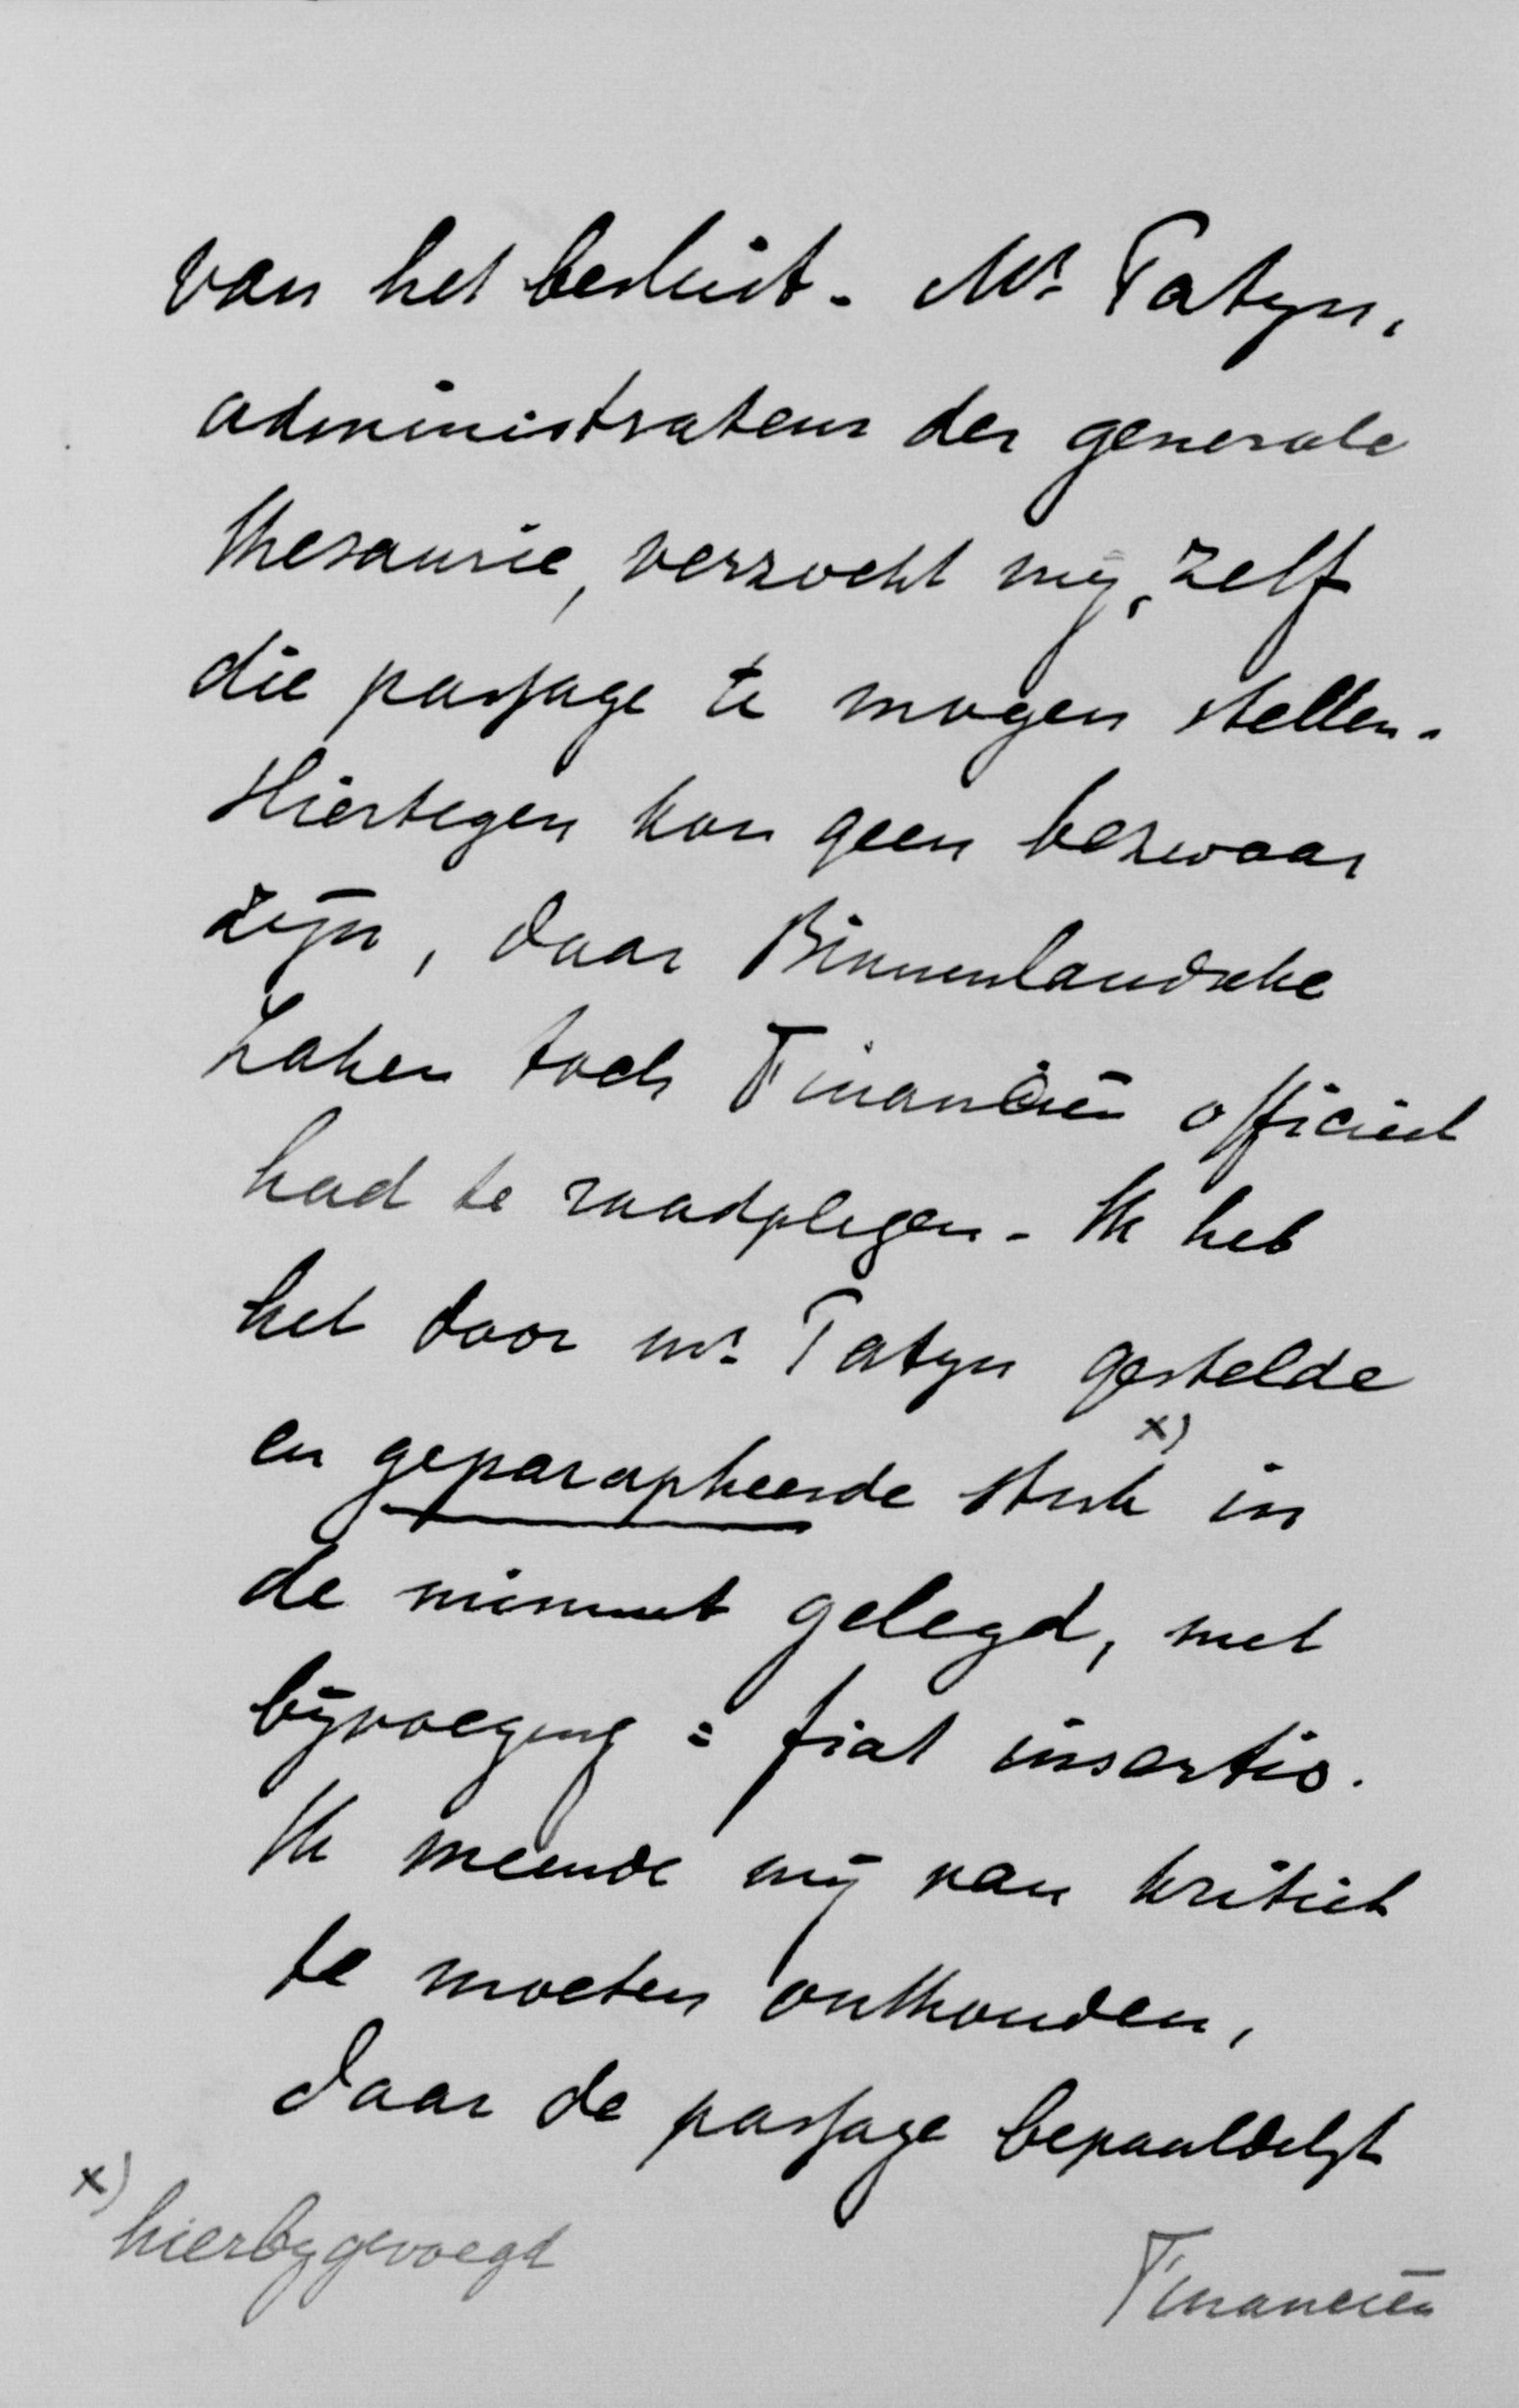 van het besluit. Mr. Patyn,
administrateur der generale
thesaurie, verzocht mij, zelf
die passage te mogen stellen.
Hiertegen kon geen bezwaar
zijn, daar Binnenlandsche
Zaken toch Financiën officieel
had te raadplegen. Ik heb
het door mr. Patyn gestelde
en geparapheerde stuk x) in
de minuut gelegd, met
bijvoeging: fiat insertio.
Ik meende mij van kritiek
te moeten onthouden,
daar de passage bepaaldelijk
x) hierbijgevoegd
Financiën